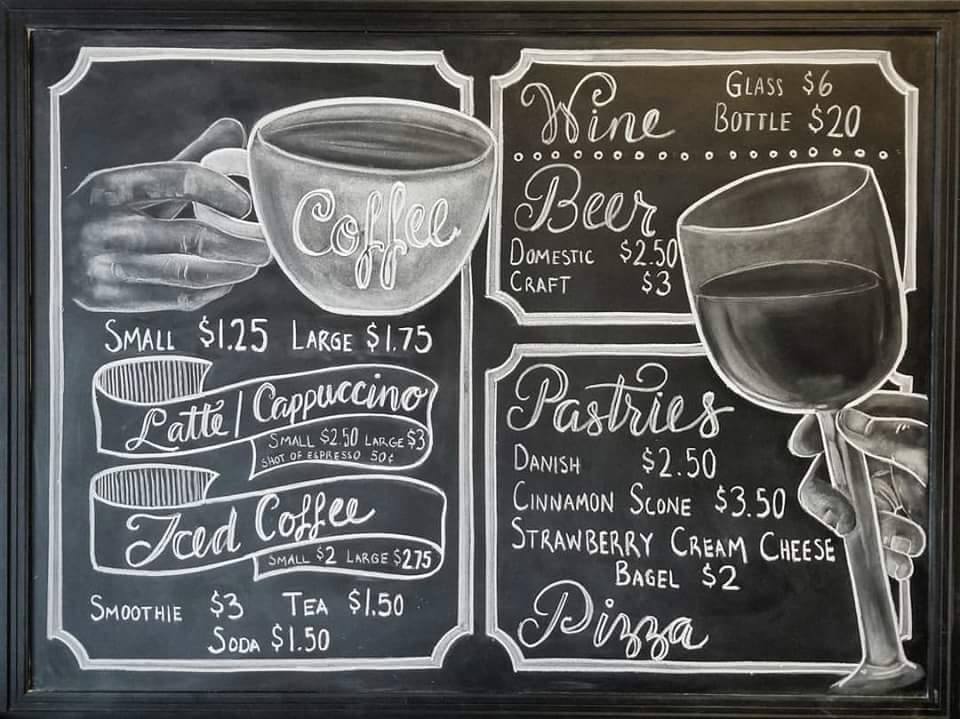 Coffee
SMALL $1.25 LARGE $1.75
Latté / Cappuccino
SMALL $2.50 LARGE $3
SHOT OF ESPRESSO 50¢
Iced Coffee
SMALL $2 LARGE $2.75
SMOOTHIE $3 TEA $1.50
SODA $1.50
Wine
GLASS $6
BOTTLE $20
Beer
DOMESTIC $2.50
CRAFT $3
Pastries
DANISH $2.50
CINNAMON SCONE $3.50
STRAWBERRY CREAM CHEESE
BAGEL $2
Pizza